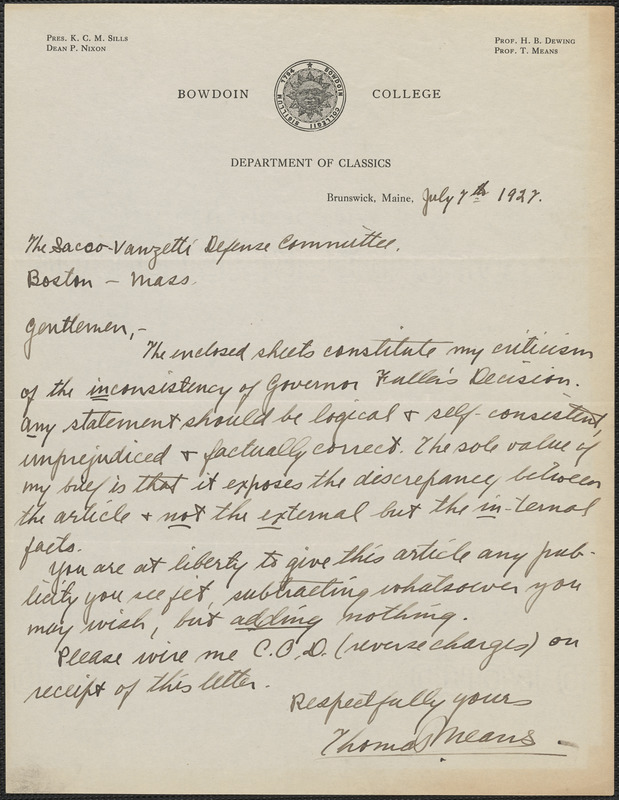 PRES. K. C. M. SILLS
DEAN P. NIXON
PROF. H. B. DEWING
PROF. T. MEANS
BOWDOIN COLLEGE
1794 BOWDOIN COLLEGII SIGILLUM
DEPARTMENT OF CLASSICS
Brunswick, Maine, July 7th 1927.
The Sacco-Vanzetti Defense Committee.
Boston - Mass.
Gentlemen,-
The enclosed sheets constitute my criticism
of the inconsistency of Governor Fuller's Decision.
Any statement should be logical & self-consistent,
unprejudiced & factually correct. The sole value of
my brief is that it exposes the discrepancy between
the article & not the external but the in-ternal
facts.
You are at liberty to give this article any pub-
licity you see fit, subtracting whatsoever you
may wish, but adding nothing.
Please wire me C.O.D. (reverse charges) on
receipt of this letter.
Respectfully yours
Thomas Means